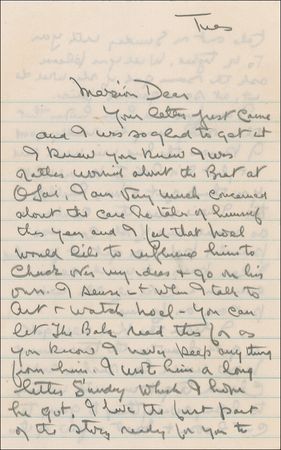 Tues
Marion Dear
Your letter just came
and I was so glad to get it
I knew you knew I was
rather worried about the Brat at
Ojai, I am very much concerned
about the care he takes of himself
this year and I feel that Noel
would like to influence him to
Chuck over my ideas & go on his
own. I sense it when I talk to
Art & watch Noel - You can
let The Babe read this for as
you know I never keep anything
from him. I wrote him a long
letter Sunday which I hope
he got, I have the first part
of the story ready for you to